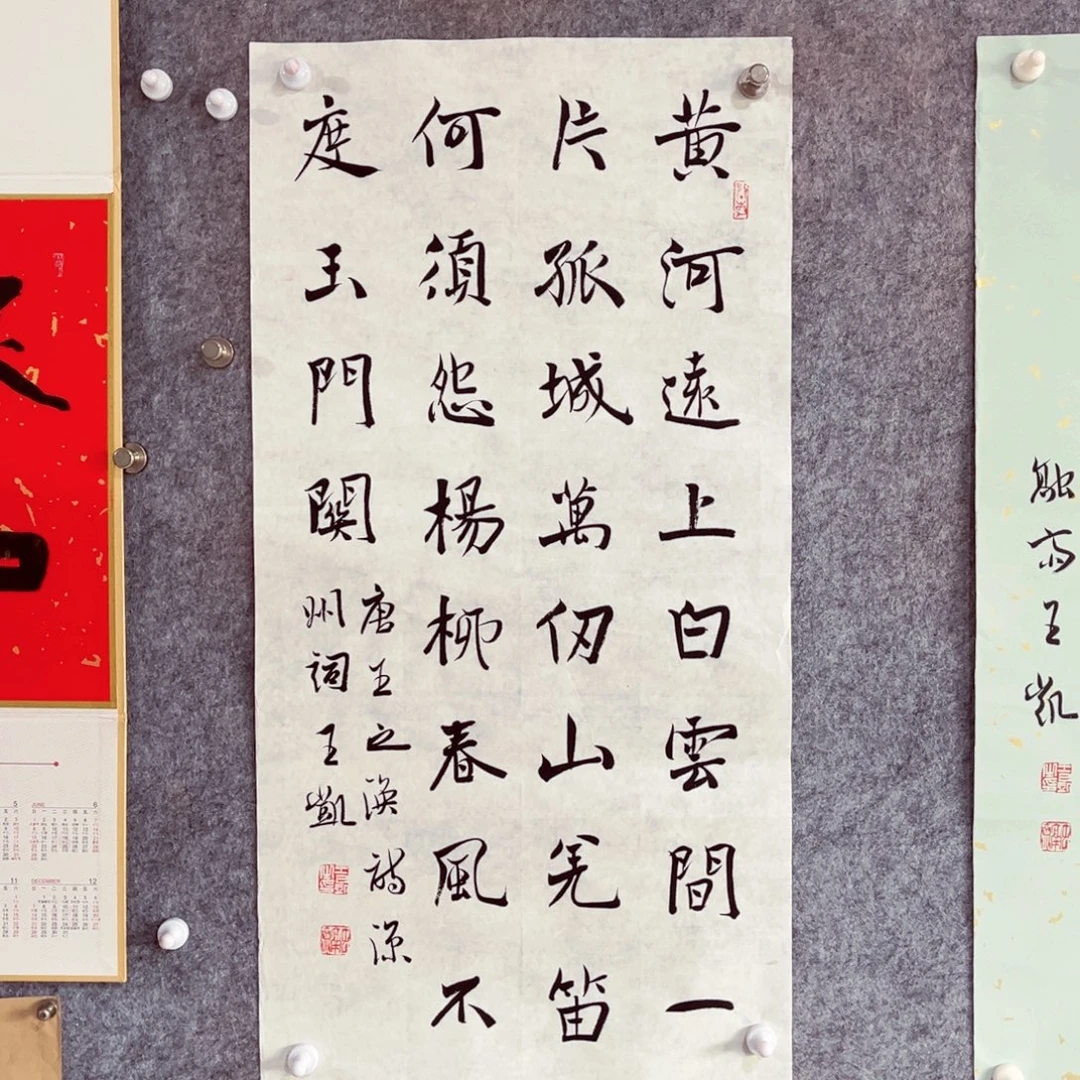 黄河遠上白雲間一
片孤城萬仞山羌笛
何須怨楊柳春風不
度玉門關
唐王之渙詩涼
州詞王凱
融斋王凱
5
JUNE 6
11
DECEMBER 12